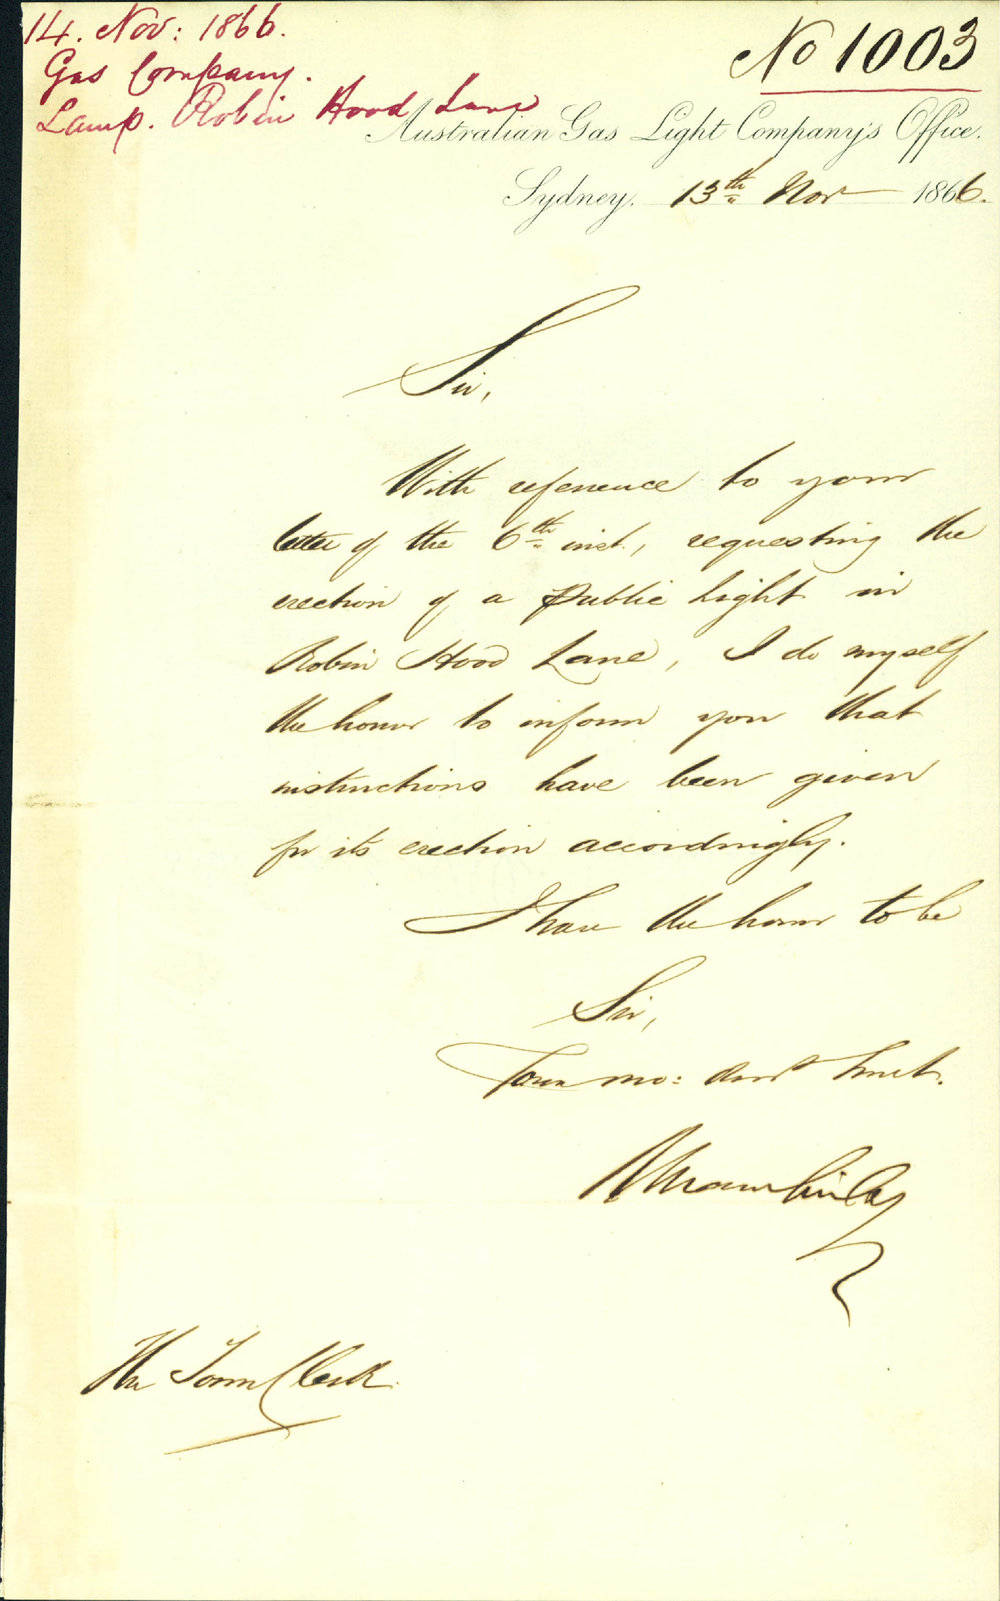 14. Nov: 1866.
Gas Company.
Lamp. Robin Hood Lane
No 1003
Australian Gas Light Company's Office.
Sydney. 13th Nov 1866.
Sir,
With reference to your
letter of the 6th inst., requesting the
erection of a Public Light in
Robin Hood Lane, I do myself
the honor to inform you that
instructions have been given
for its erection accordingly.
I have the honor to be
Sir,
Your mo: Obedt Servt.
The Town Clerk